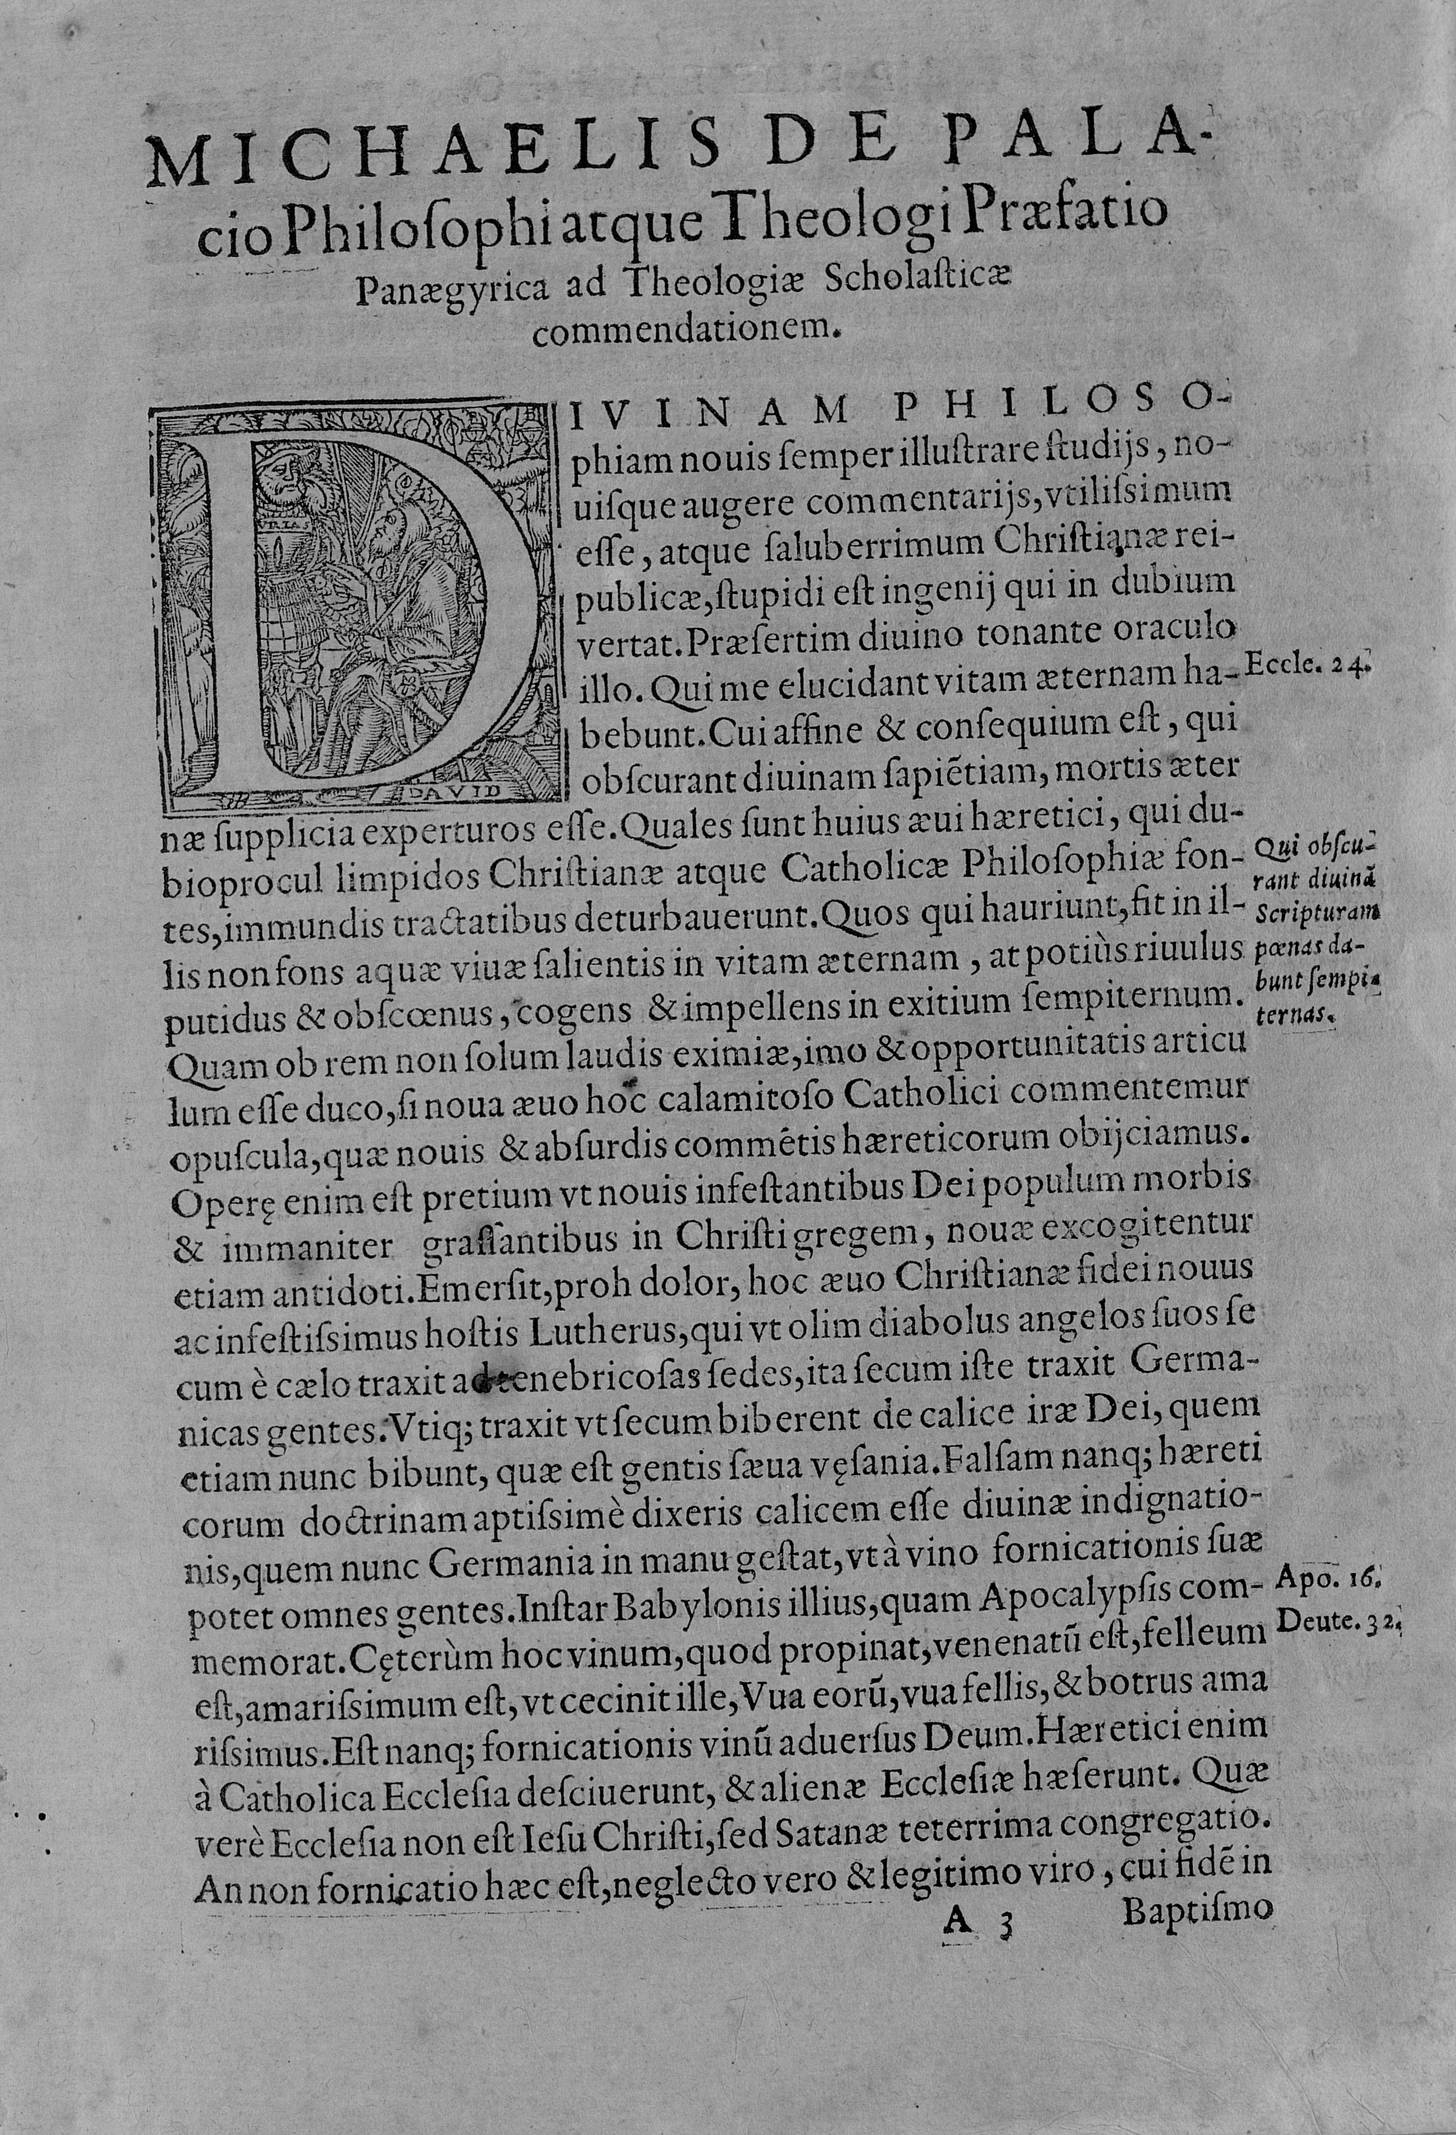 MICHAELIS DE PALA-
cio Philoſophi atque Theologi Præfatio
Panægyrica ad Theologiæ Scholaſticæ
commendationem.
DIVINAM PHILOSO-
phiam nouis ſemper illuſtrare ſtudijs, no-
uiſque augere commentarijs, vtiliſsimum
eſſe, atque ſaluberrimum Chriſtianæ rei-
publicæ, ſtupidi eſt ingenij qui in dubium
vertat. Præſertim diuino tonante oraculo
illo. Qui me elucidant vitam æternam ha-
Eccle. 24.
bebunt. Cui affine & conſequium eſt, qui
obſcurant diuinam ſapiẽtiam, mortis æter
VRIAS
DAVID
næ ſupplicia experturos eſſe. Quales ſunt huius æui hæretici, qui du-
bioprocul limpidos Chriſtianæ atque Catholicæ Philoſophiæ fon-
tes, immundis tractatibus deturbauerunt. Quos qui hauriunt, fit in il-
lis non fons aquæ viuæ ſalientis in vitam æternam, at potiùs riuulus
putidus & obſcœnus, cogens & impellens in exitium ſempiternum.
Qui obſcu-
rant diuinã
Scripturam
pœnas da-
bunt ſempi-
ternas.
Quam ob rem non ſolum laudis eximiæ, imo & opportunitatis articu
lum eſſe duco, ſi noua æuo hoc calamitoſo Catholici commentemur
opuſcula, quæ nouis & abſurdis commẽtis hæreticorum obijciamus.
Operę enim eſt pretium vt nouis infeſtantibus Dei populum morbis
& immaniter graſſantibus in Chriſti gregem, nouæ excogitentur
etiam antidoti. Emerſit, proh dolor, hoc æuo Chriſtianæ fidei nouus
ac infeſtiſsimus hoſtis Lutherus, qui vt olim diabolus angelos ſuos ſe
cum è cælo traxit ad tenebricoſas ſedes, ita ſecum iſte traxit Germa-
nicas gentes. Vtiq; traxit vt ſecum biberent de calice iræ Dei, quem
etiam nunc bibunt, quæ eſt gentis ſæua vęſania. Falſam nanq; hæreti
corum doctrinam aptiſsimè dixeris calicem eſſe diuinæ indignatio-
nis, quem nunc Germania in manu geſtat, vt à vino fornicationis ſuæ
potet omnes gentes. Inſtar Babylonis illius, quam Apocalypſis com-
Apo. 16.
memorat. Cęterùm hoc vinum, quod propinat, venenatũ eſt, felleum
Deute. 32.
eſt, amariſsimum eſt, vt cecinit ille, Vua eorũ, vua fellis, & botrus ama
riſsimus. Eſt nanq; fornicationis vinũ aduerſus Deum. Hæretici enim
à Catholica Eccleſia deſciuerunt, & alienæ Eccleſiæ hæſerunt. Quæ
verè Eccleſia non eſt Ieſu Chriſti, ſed Satanæ teterrima congregatio.
An non fornicatio hæc eſt, neglecto vero & legitimo viro, cui fidẽ in
A 3
Baptiſmo